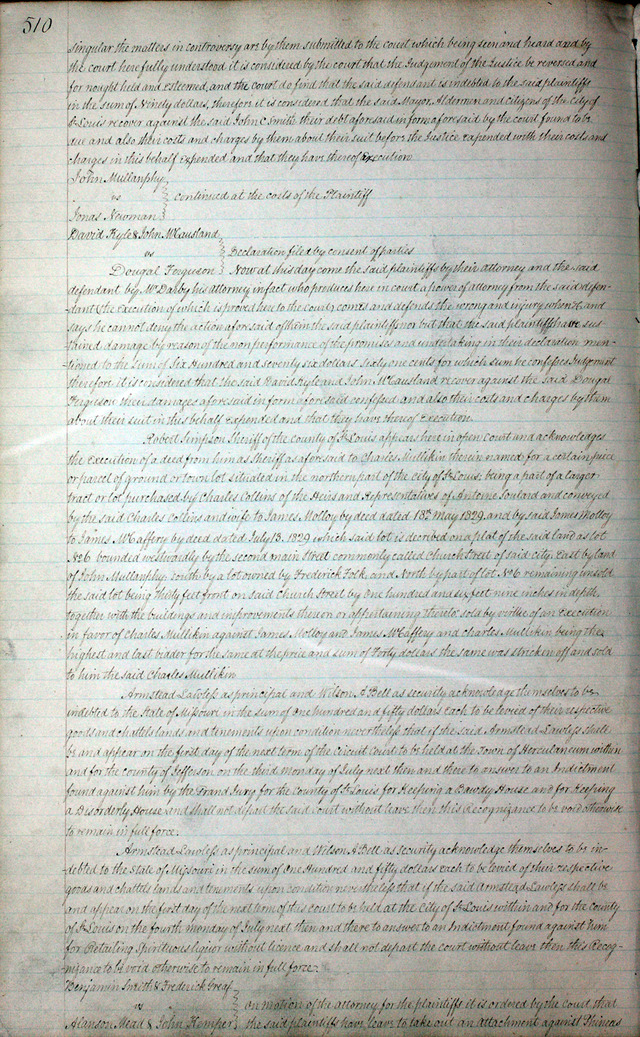 510
singular the matters in controversy are by them submitted to the court which being seen and heard and by
the court here fully understood it is considered by the court that the Judgement of the Justice be reversed and
for nought held and esteemed, and the court do find that the said defendant is indebted to the said plaintiffs
in the sum of Ninety dollars, therefore it is considered that the said Mayor, Alderman and citizens of the city of
St Louis recover against the said John C Smith their debt aforesaid in form aforesaid by the court found to be
due and also their costs and charges by them about their suit before the Justice expended with their costs and
charges in this behalf expended and that they have thereof Execution
John Mullanphy
vs continued at the costs of the Plaintiff
Jonas Newman
David Kyle & John McCausland
vs Declaration filed by consent of parties
Dougal Ferguson Now at this day come the said plaintiffs by their attorney and the said
defendant by Mr Darby his Attorney in fact who produces here in court a power of attorney from the said defen-
dant & the execution of which is proved here to the court, comes and defends the wrong and injury when &c and
says he cannot deny the action aforesaid of them the said plaintiffs nor but that the said plaintiffs have sus-
tained damage by reason of the nonperformance of the promises and undertaking in their declaration men-
tioned to the sum of Six Hundred and seventy six dollars sixty one cents for which sum he confesses Judgement
therefore it is considered that the said David Kyle and John McCausland recover against the Said Dougal
Ferguson their damages aforesaid in form aforesaid confessed and also their costs and charges by them
about their suit in this behalf expended and that they have thereof Execution.
Robert Simpson Sheriff of the county of St Louis appears here in open court and acknowledges
the Execution of a deed from him as Sheriff as aforesaid to Charles Mullikin therein named for a certain piece
or parcel of ground or town lot situated in the northern part of the city of St Louis; being a part of a larger
tract or lot purchased by Charles Collins of the Heirs and Representatives of Antoine Soulard and conveyed
by the said Charles Collins and wife to James Molloy by deed dated 18th May 1829, and by said James Molloy
to James McCaffery by deed dated July 13. 1829 which said lot is decribed on a plat of the said land as lot
No 6 bounded westwardly by the second main Street commonly called Church street of said city, East by land
of John Mullanphy, south by a lot owned by Frederick Folk, and North by part of lot No 6 remaining unsold
the said lot being thirty feet front on said Church Street by one hundred and six feet nine inches in depth,
together with the buildings and improvements thereon or appertaining thereto sold by virtue of an Execution
in favor of Charles Mullikin against James Molloy and James McCaffery and Charles Mullikin being the
highest and last bidder for the same at the price and sum of Forty dollars the same was stricken off and sold
to him the said Charles Mullikin
Armstead Lawless as principal and Wilson A Bell as security acknowledge themselves to be
indebted to the State of Missouri in the sum of One hundred and fifty dollars each to be levied of their respective
goods and chattels lands and tenements upon condition nevertheless that if the said Armstead Lawless shall
be and appear on the first day of the next term of the Circuit Court to be held at the Town of Herculaneum within
and for the county of Jefferson on the third monday of July next then and there to answer to an Indictment
found against him by the Grand Jury for the county of St Louis for Keeping a Bawdy House and for keeping
a Disorderly House and shall not depart the said court without leave then this Recognizance to be void otherwise
to remain in full force.
Armstead Lawless as principal and Wilson A Bell as security acknowledge themselves to be in-
debted to the State of Missouri in the sum of One Hundred and fifty dollars each to be levied of their respective
goods and chattels lands and tenements upon condition nevertheless that if the said Armstead Lawless shall be
and appear on the first day of the next term of this court to be held at the City of St Louis within and for the county
of St Louis on the fourth monday of July next then and there to answer to an Indictment found against him
for Retailing Spirituous liquor without licence and shall not depart the court without leave then this Recog-
nizance to be void otherwise to remain in full force.
Benjamin Smith & Frederick Greaf
vs on motion of the attorney for the plaintiffs it is ordered by the court that
Alanson Mead & John Kemper the said plaintiffs have leave to take out an Attachment against Phineas